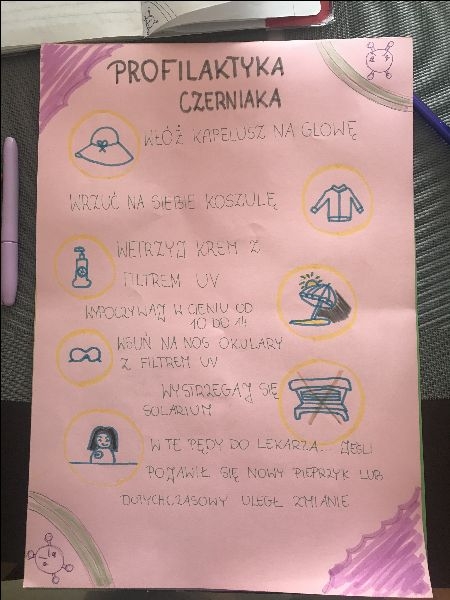 PROFILAKTYKA
CZERNIAKA
WŁÓŻ KAPELUSZ NA GŁOWĘ
WRZUĆ NA SIEBIE KOSZULĘ
WETRZYJ KREM Z
FILTREM UV
WYPOCZYWAJ W CIENIU OD
10 DO 14
WSUŃ NA NOS OKULARY
Z FILTREM UV
WYSTRZEGAJ SIĘ
SOLARIUM
W TE PĘDY DO LEKARZA... JEŚLI
POJAWIŁ SIĘ NOWY PIEPRZYK LUB
DOTYCHCZASOWY ULEGŁ ZMIANIE